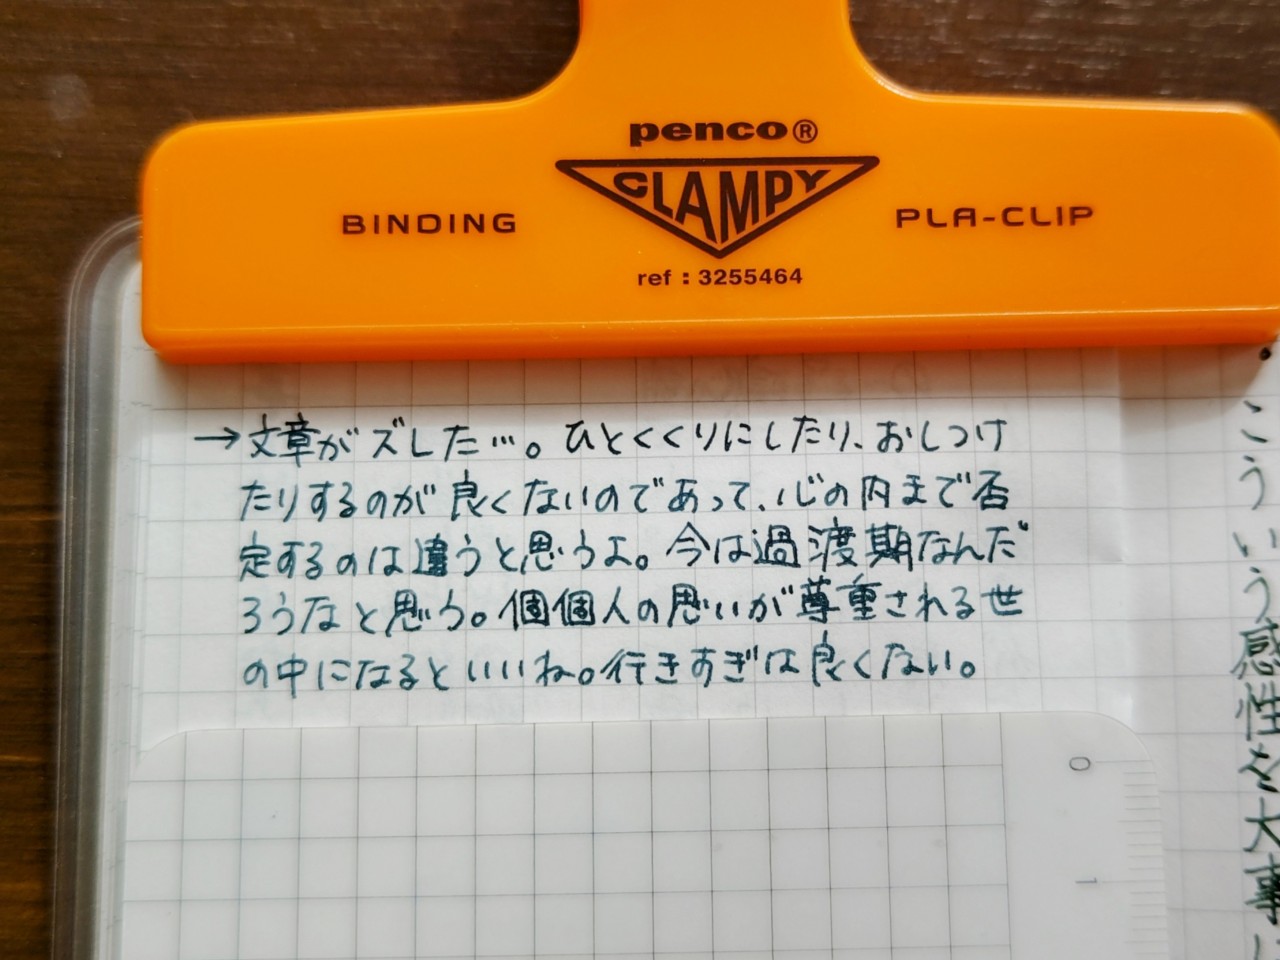 penco®
CLAMPY
BINDING
PLA-CLIP
ref : 3255464
→文章がズレた…。ひとくくりにしたり、おしつけ
たりするのが良くないのであって、心の内まで否
定するのは違うと思うよ。今は過渡期なんだ
ろうなと思う。個個人の思いが尊重される世
の中になるといいね。行きすぎは良くない。
こういう感性を大事に
0
1